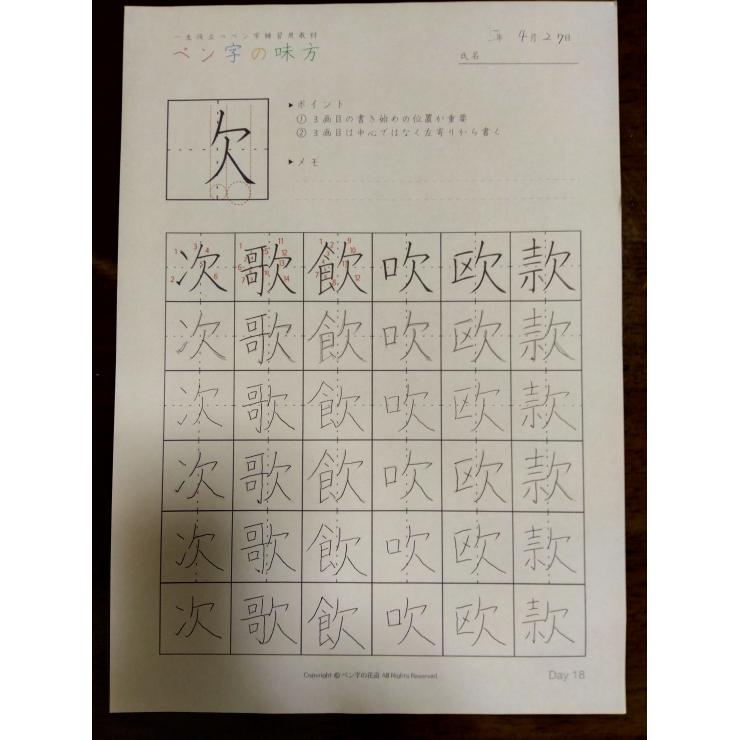 一生役立つペン字練習用教材
ペン字の味方
年 4月27日
氏名
欠
▶ポイント
① 3画目の書き始めの位置が重要
② 3画目は中心ではなく左寄りから書く
▶メモ
次 歌 飲 吹 欧 款
次 歌 飲 吹 欧 款
次 歌 飲 吹 欧 款
次 歌 飲 吹 欧 款
次 歌 飲 吹 欧 款
次 歌 飲 吹 欧 款
Copyright © ペン字の花道 All Rights Reserved.
Day 18